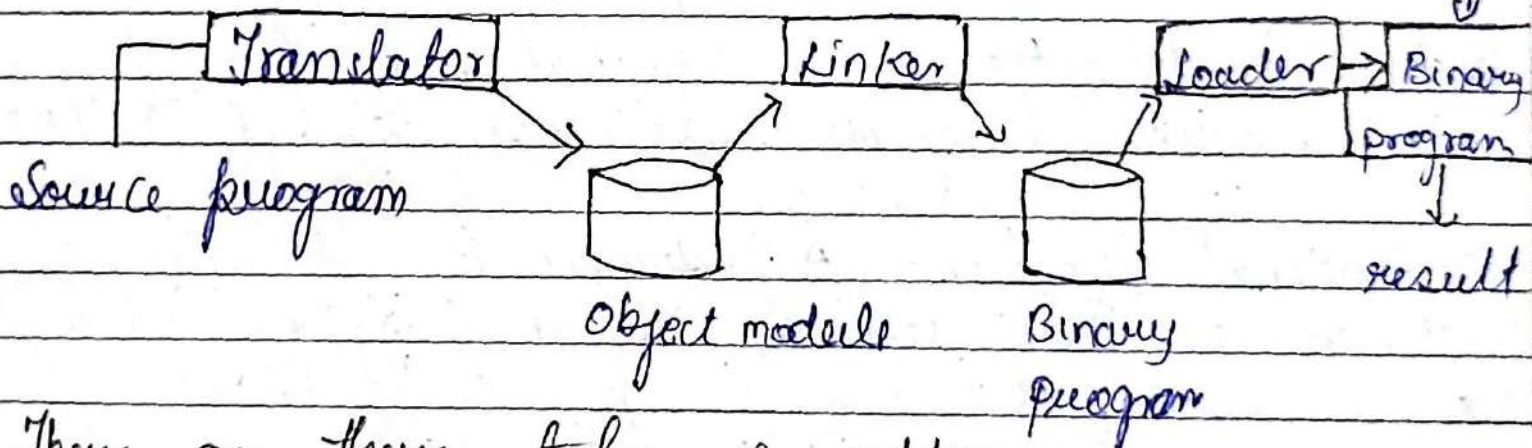 Translator
Linker
Loader
Binary
program
Source program
result
Object module
Binary
program
There are three